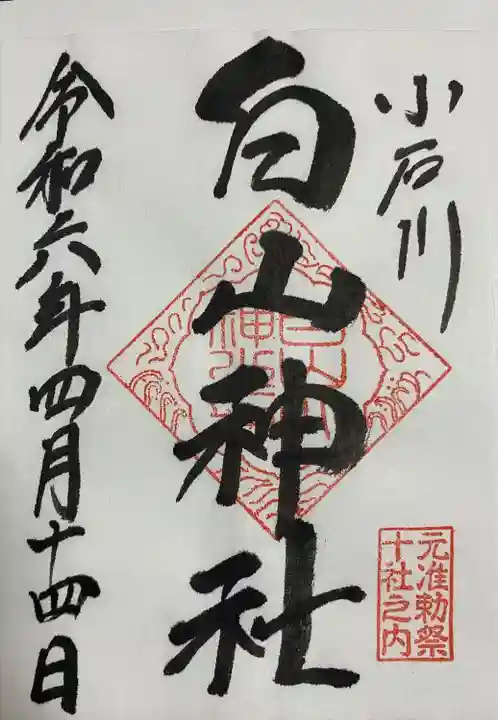 小石川
元准勅祭
十社之内
白山神社
令和六年四月十四日